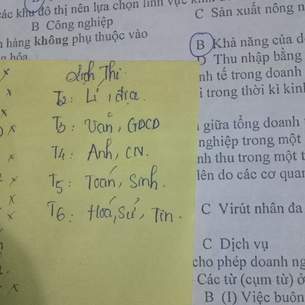 các khu đô thị nên lựa chọn lĩnh vực
B Công nghiệp
C Sản xuất nông n
hàng không phụ thuộc vào
B Khả năng của d
D Thu nhập bằng
Lịch Thi
nh tế trong doanh
T2: Lí, địa.
i trong thời kì kinh
T3: Văn, GDCD
i giữa tổng doanh
nghiệp trong một
T4: Anh, CN.
nh thu trong một t
T5: Toán, Sinh.
lên do các cơ quan
T6: Hoá, Sử, Tin.
C Virút nhân đa
C Dịch vụ
cho phép doanh ng
Các từ (cụm từ) ở
B (I) Việc buôn